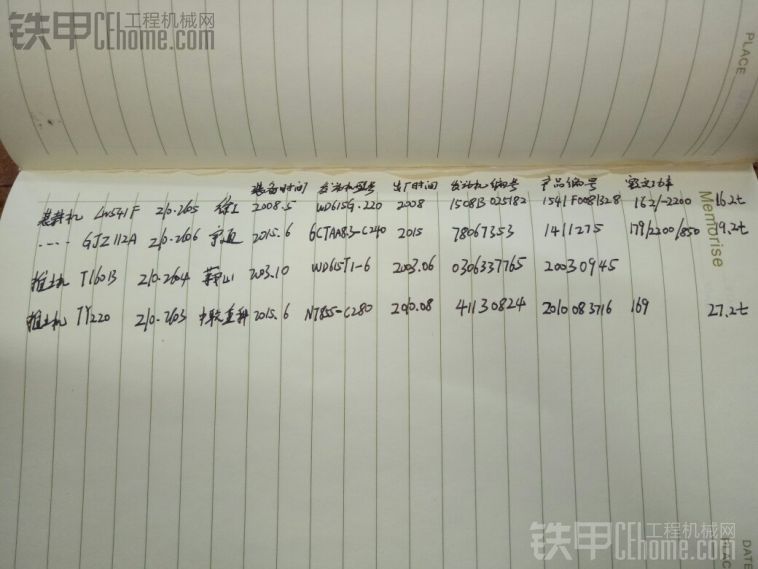 铁甲 工程机械网 CEhome.com
PLACE
装备时间 发动机型号 出厂时间 发动机编号 产品编号 额定功率
装载机 LW541F 210-2605 徐工 2008.5 WD615G.220 2008 1508B025182 1541F0081328 162/-2200 16.2t
---- GJZ112A 210-2606 宇通 2015.6 6CTAA8.3-C240 2015 78067353 1411275 179/2200/850 19.2t
Memorise
推土机 T160B 210-2604 2003.10 WD615T1-6 2003.06 0306337765 20030945
推土机 TY220 210-2603 中联重科 2015.6 NT855-C280 2010.08 41130824 2010083716 169 27.2t
铁甲 工程机械网 CEhome.com
PLACE
DATE